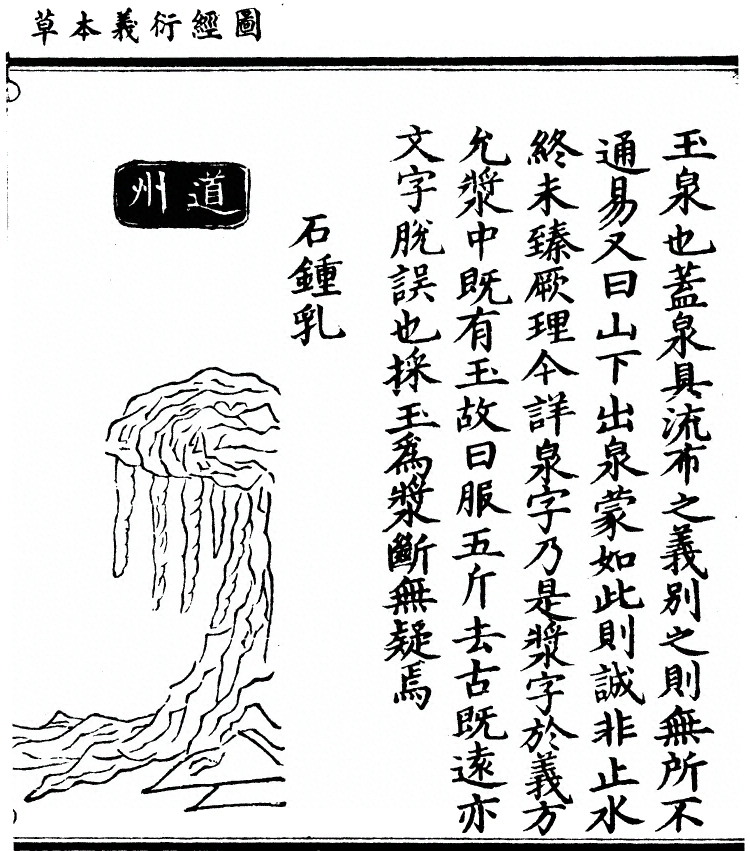 圖經衍義本草
玉泉也蓋泉具流布之義別之則無所不
通易又曰山下出泉蒙如此則誠非止水
終未臻厥理今詳泉字乃是漿字於義方
允漿中既有玉故曰服五斤去古既遠亦
文字脫誤也採玉爲漿斷無疑焉
石鍾乳
道州